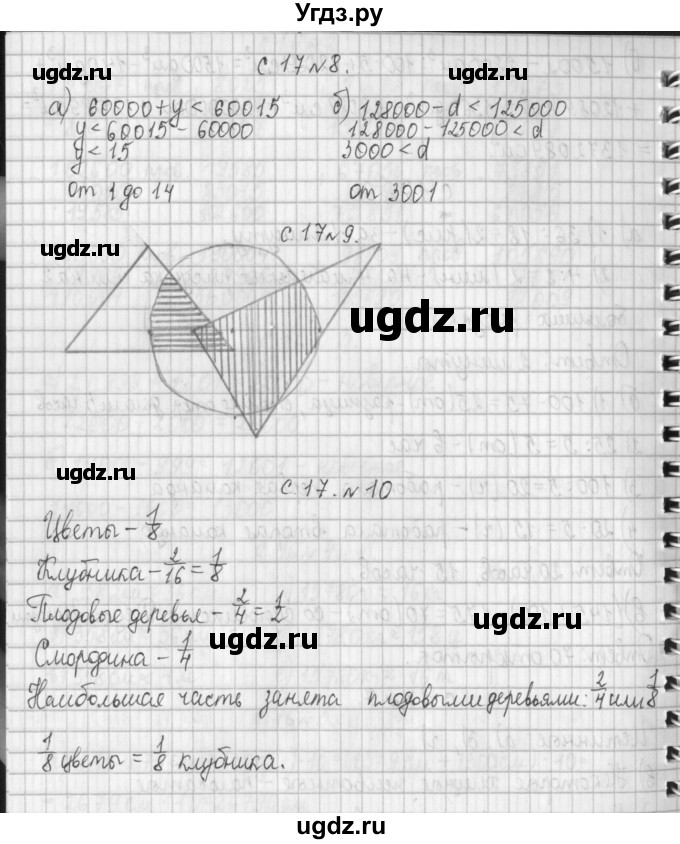 Угдз.ру
с. 17 № 8.
а) 60000 + y < 60015
y < 60015 - 60000
y < 15
От 1 до 14
б) 128000 - d < 125000
128000 - 125000 < d
3000 < d
от 3001
с. 17 № 9.
с. 17. № 10
Цветы - 1/8
Клубника - 2/16 = 1/8
Плодовые деревья - 2/4 = 1/2
Смородина - 1/4
Наибольшая часть занята плодовыми деревьями: 2/4 или 1/8
1/8 цветы = 1/8 клубника.
ugdz.ru
ugdz.ru
ugdz.ru
ugdz.ru
ugdz.ru
ugdz.ru
ugdz.ru
ugdz.ru
ugdz.ru
ugdz.ru